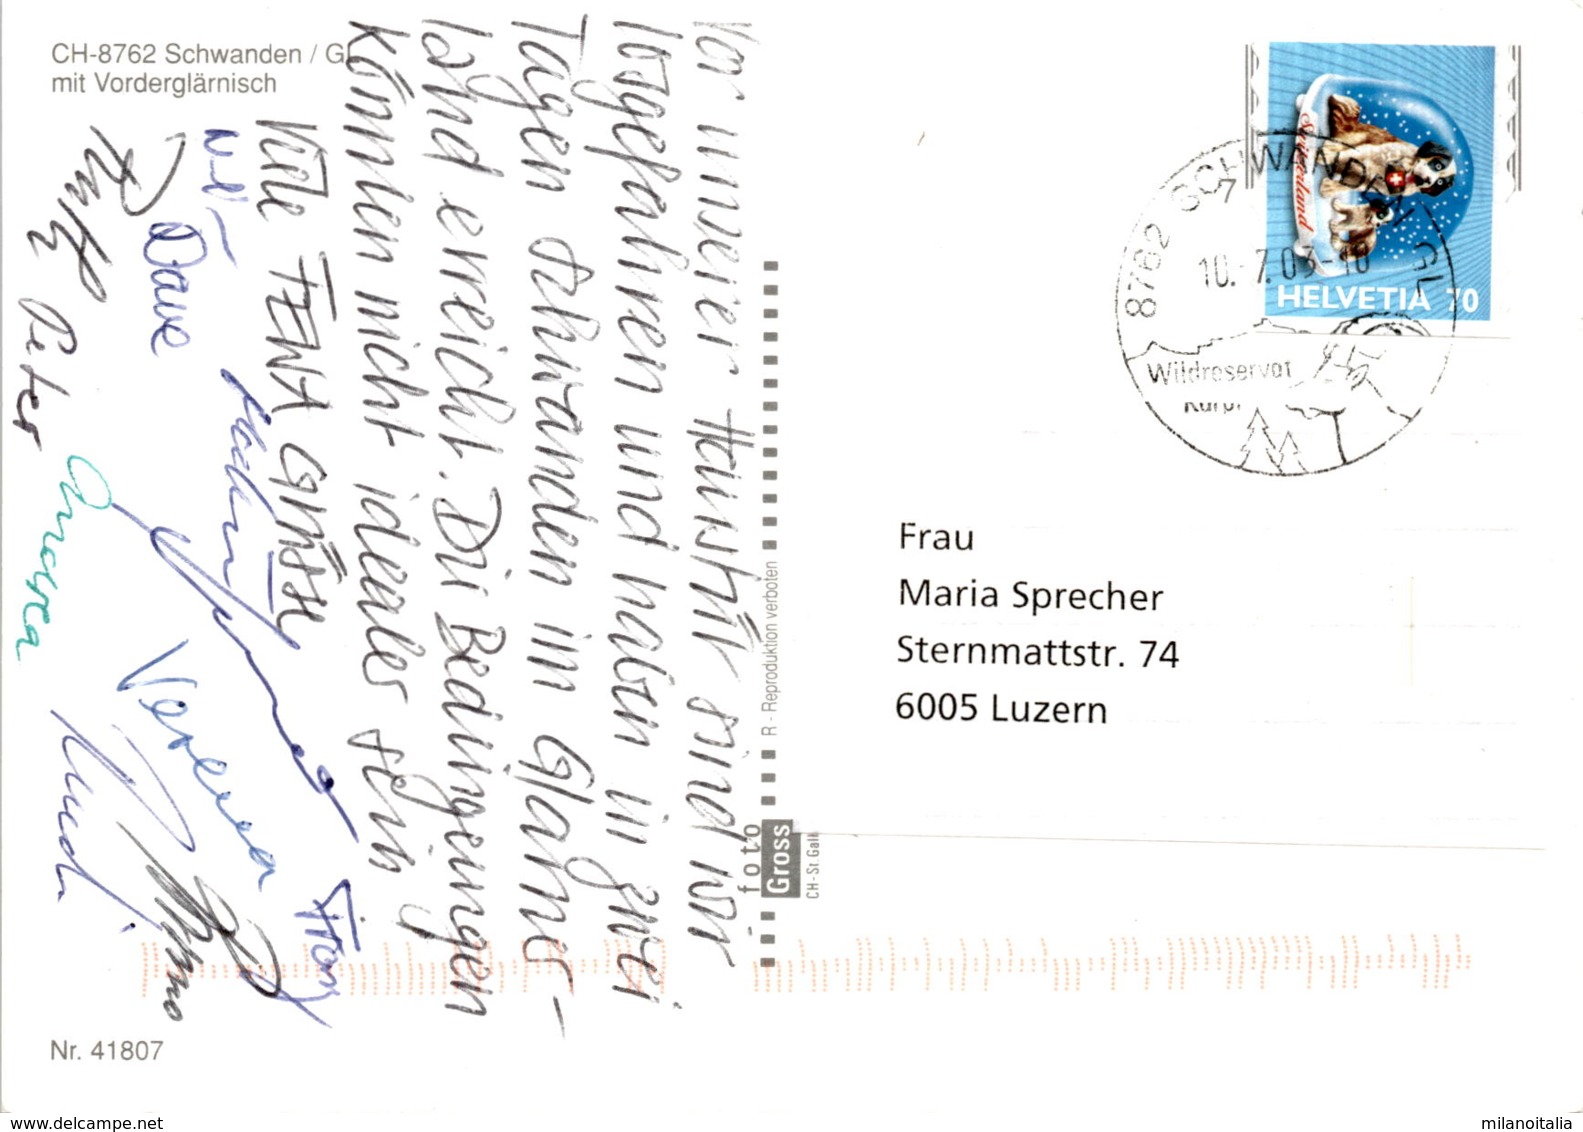 CH-8762 Schwanden / Gl
mit Vorderglärnisch
Vor unserer Haustür sind wir
losgefahren und haben in zwei
Tagen Schwanden im Glarner-
land erreicht. Die Bedingungen
könnten nicht idealer sein
Viele FEWA Grüsse
Peter
Verena
Franz
Ruedi
Nr. 41807
R - Reproduktion verboten
foto
Gross
CH-St.Gall
8762 SCHWANDEN GL
10.-7.03-10
Wildreservat
Kärpf
Switzerland
HELVETIA 70
Frau
Maria Sprecher
Sternmattstr. 74
6005 Luzern
www.delcampe.net
milanoitalia